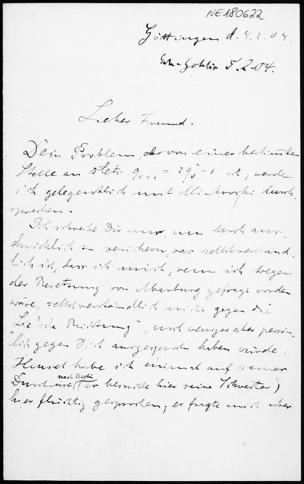 NE180622
Göttingen d. 4.2.04.
5.2.04.
Lieber Freund.
Dein Problem, ob von einer bestimmten
Stelle an stets ist, werde
ich gelegentlich mit Minkowski durch-
sprechen.
Ich schreibe Dir nur um Dich aus-
drücklich zu versichern, was selbstverständ-
lich ist, dass ich mich, wenn ich wegen
der Besetzung von Marburg gefragt worden
wäre, selbstverständlich nicht gegen die
"Lie'sche Richtung", noch weniger aber persön-
lich gegen Dich ausgesprochen haben würde.
Hensel habe ich einmal auf seiner
Durchreise (er besuchte hier seine Schwester)
hier flüchtig gesprochen; er fragte mich über